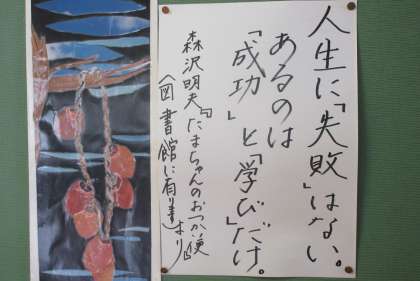 人生に「失敗」はない。
あるのは
「成功」と「学び」だけ。
森沢明夫『たまちゃんのおつかい便』より
(図書館に有ります)